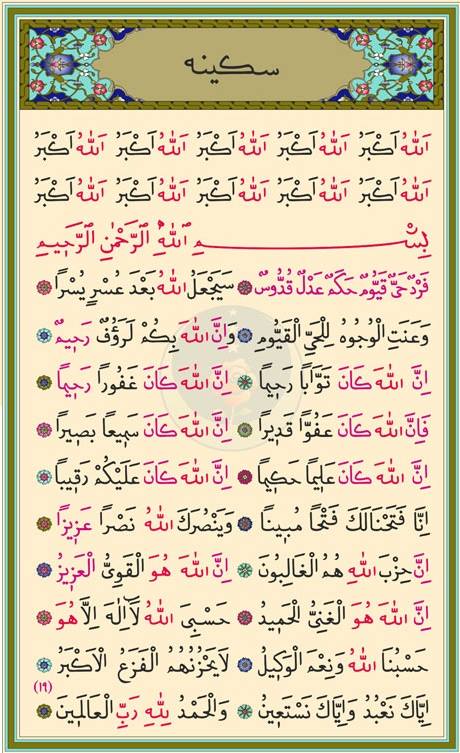 سكينه
اَللهُ اَكْبَرُ اَللهُ اَكْبَرُ اَللهُ اَكْبَرُ اَللهُ اَكْبَرُ اَللهُ اَكْبَرُ
اَللهُ اَكْبَرُ اَللهُ اَكْبَرُ اَللهُ اَكْبَرُ اَللهُ اَكْبَرُ اَللهُ اَكْبَرُ
بِسْمِ اللهِ الرَّحْمٰنِ الرَّحِيمِ
فَرْدٌ حَيٌّ قَيُّومٌ حَكَمٌ عَدْلٌ قُدُّوسٌ سَيَجْعَلُ اللهُ بَعْدَ عُسْرٍ يُسْرًا
وَعَنَتِ الْوُجُوهُ لِلْحَيِّ الْقَيُّومِ وَاِنَّ اللهَ بِكُمْ لَرَؤُفٌ رَحِيمٌ
اِنَّ اللهَ كَانَ تَوَّابًا رَحِيمًا اِنَّ اللهَ كَانَ غَفُورًا رَحِيمًا
فَاِنَّ اللهَ كَانَ عَفُوًّا قَدِيرًا اِنَّ اللهَ كَانَ سَمِيعًا بَصِيرًا
اِنَّ اللهَ كَانَ عَلِيمًا حَكِيمًا اِنَّ اللهَ كَانَ عَلَيْكُمْ رَقِيبًا
اِنَّا فَتَحْنَا لَكَ فَتْحًا مُبِينًا وَيَنْصُرَكَ اللهُ نَصْرًا عَزِيزًا
اِنَّ حِزْبَ اللهِ هُمُ الْغَالِبُونَ اِنَّ اللهَ هُوَ الْقَوِيُّ الْعَزِيزُ
اِنَّ اللهَ هُوَ الْغَنِيُّ الْحَمِيدُ حَسْبِيَ اللهُ لَٓا اِلٰهَ اِلَّا هُوَ
حَسْبُنَا اللهُ وَنِعْمَ الْوَكِيلُ لَا يَحْزُنُهُمُ الْفَزَعُ الْاَكْبَرُ
(١٩)
اِيَّاكَ نَعْبُدُ وَاِيَّاكَ نَسْتَعِينُ وَالْحَمْدُ لِلهِ رَبِّ الْعَالَمِينَ